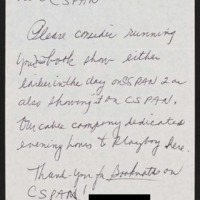 CSPAN
Please consider running
your book show either
earlier in the day on CSPAN 2 or
also showing it on CSPAN.
Our cable company dedicates
evening hours to Playboy here.
Thank-you for Booknotes on
CSPAN!